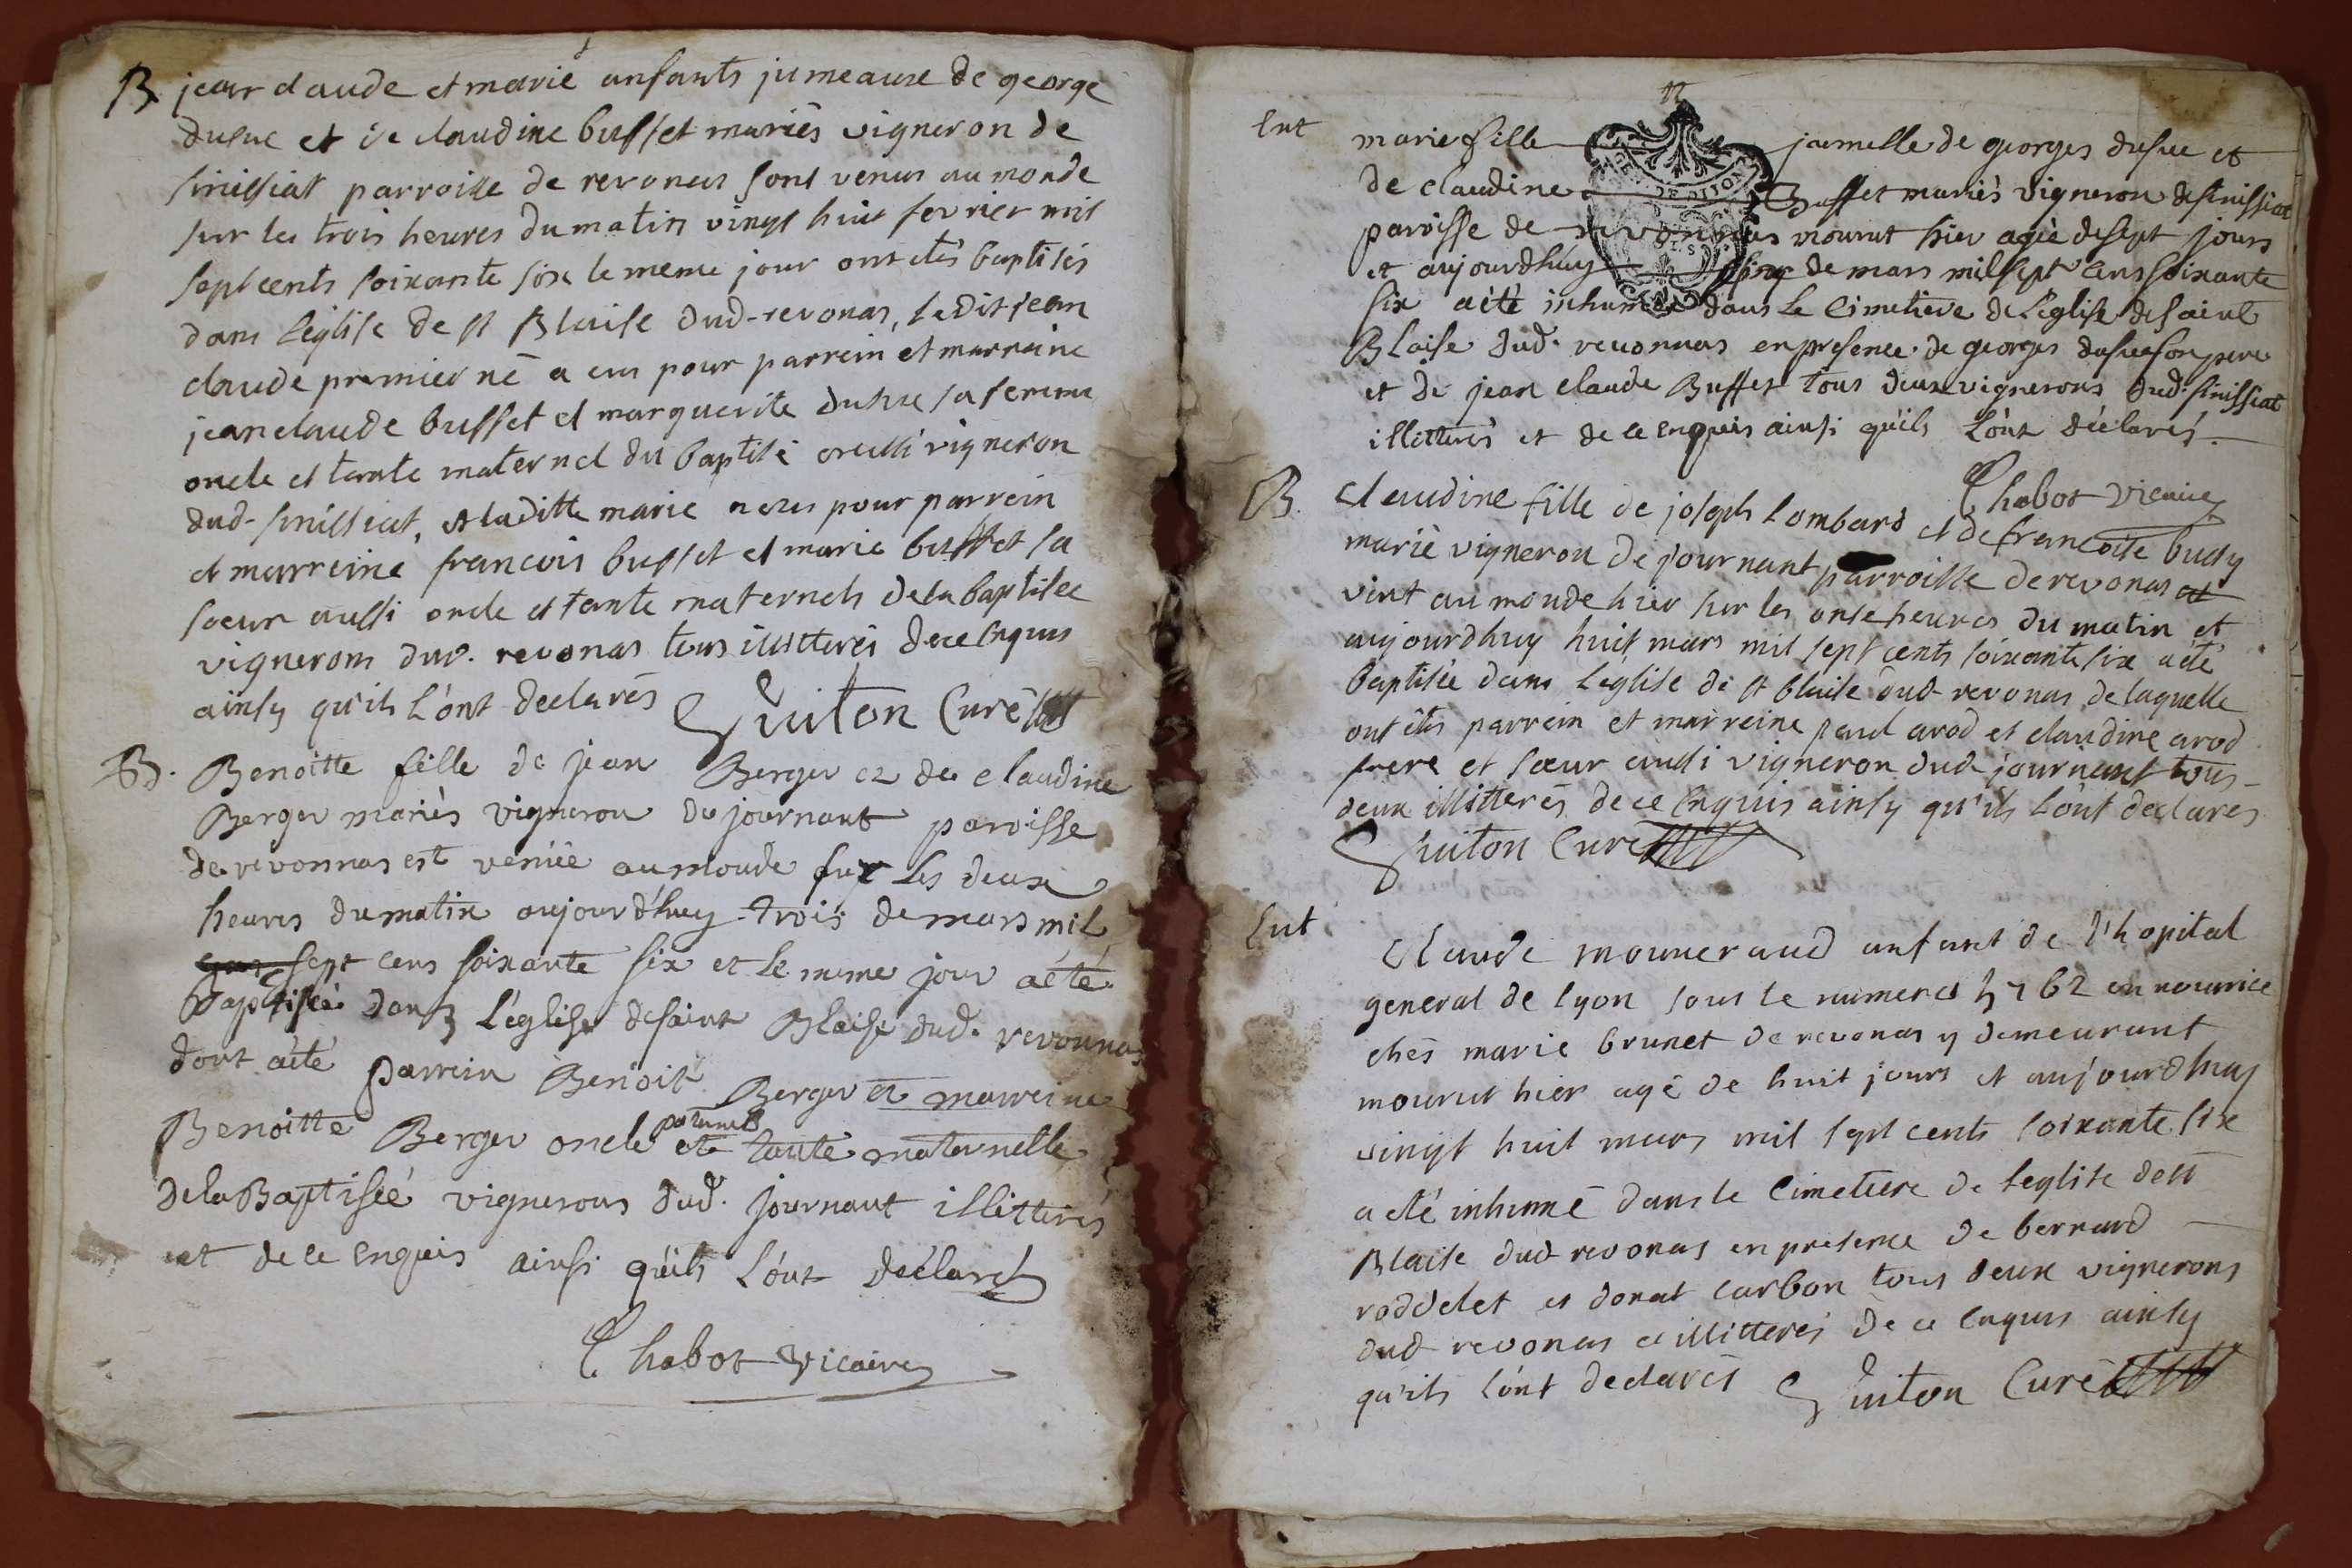 B jean claude et marie enfants jumeaux de george
dusuc et de claudine buffet mariés vigneron de
sinissiat parroisse de revonas sont venus au monde
sur les trois heures du matin vingt huit fevrier mil
sept cents soixante six le meme jour ont etés baptisés
dans l'église de st Blaise dud. revonas, ledit jean
claude premier né a eu pour parrein et marraine
jean claude buffet et marguerite dusuc sa femme
oncle et tante maternel du baptisé vigneron
dud. sinissiat, et laditte marie a eu pour parrein
et marreine francois buffet et marie buffet sa
soeur aussi oncle et tante maternels de la baptisée
vignerons dud. revonas tous illitterés de ce enquis
ainsy qu'ils l'ont declarés Guiton Curé
B. Benoitte fille de jean Berger et de claudine
Berger mariés vigneron de journant paroisse
de revonnas est venüe au monde sur les deux
heures du matin aujourd'huy trois de mars mil
sept cens soixante six et le meme jour a été
Baptisée dans l'église de saint Blaise dud. revonnas
dont a été parrein Benoit Berger et marreine
Benoitte Berger oncle paternel et tante maternelle
de la Baptisée vignerons dud. journant illitterés
et de ce enquis ainsi qu'ils l'ont déclarés
Chabot vicaire
12
GEN. DE DIJON
Ent marie fille jumelle de georges dusuc et
de claudine Buffet mariés vigneron de sinissiat
paroisse de revonnas mourut hier agée de sept jours
et aujourdhuy cinq de mars mil sept cens soixante
six a été inhumée dans le cimetière de l'église de saint
Blaise dud. revonnas en presence de georges dusuc son pere
et de jean claude Buffet tous deux vignerons dud. sinissiat
illitterés et de ce enquis ainsi qu'ils l'ont déclarés.
Chabot vicaire
B. claudine fille de joseph lombard et de francoise budy
marié vigneron de journant parroisse de revonas et
vint au monde hier sur les onse heures du matin et
aujourdhuy huit mars mil sept cents soixante six a été
baptisée dans l'église de st blaise dud. revonas de laquelle
ont étés parrein et marreine paul arod et claudine arod
frere et soeur aussi vigneron dud. journant tous
deux illitterés de ce enquis ainsy qu'ils l'ont declarés
Guiton Curé
Ent claude mouneraud enfant de l'hopital
general de lyon sous le numero 5762 en nourrice
chés marie brunet de revonas y demeurant
mourut hier agé de huit jours et aujourdhuy
vingt huit mars mil sept cents soixante six
a eté inhumé dans le cimetiere de l'eglise de st
Blaise dud. revonas en presence de bernard
roddelet et donat carbon tous deux vignerons
dud. revonas et illitterés de ce enquis ainsy
qu'ils l'ont declarés Guiton Curé